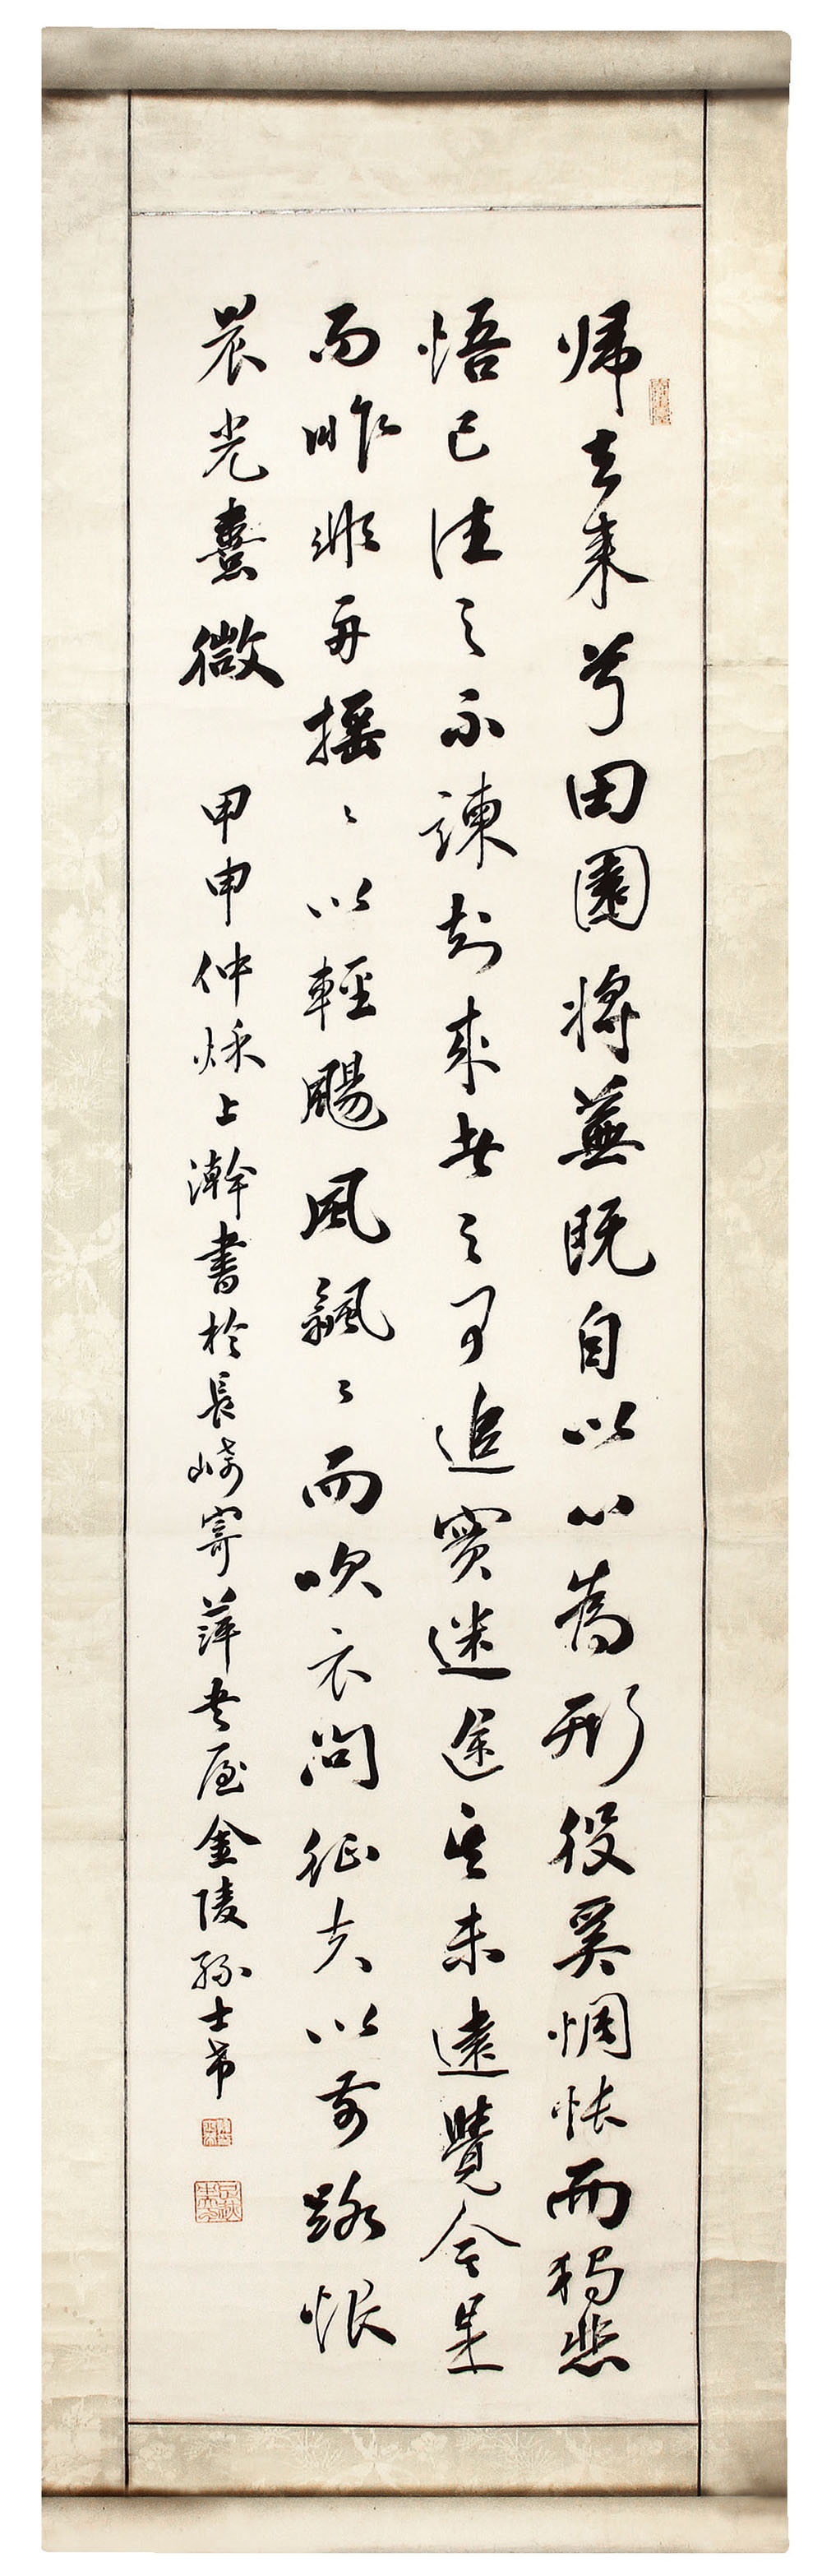 帰去来兮田園将蕪既自以心為形役奚惆悵而独悲
悟已往之不諫知来者之可追寔迷途其未遠覺今是
而昨非舟揺〻以輕颺風飄〻而吹衣问征夫以前路恨
晨光熹微 甲申仲秌上澣書於長崎寄萍書屋金陵孫士希